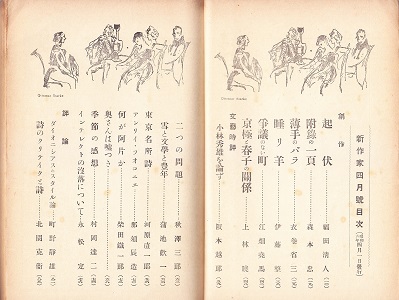 新作家四月號目次
創作
起伏 福田清人
附錄の一頁 森本忠
薄手のバラ 衣巻省三
睡り羊 伊藤整
爭議のない町 江畑亮馬
京極と春子の關係 上林曉
文藝時評
小林秀雄を論ず 阪本越郎
二つの問題 秋澤三郎
雪と文學と豊年 蒲池歡一
東京名所詩 河原直一郎
アンリイ・ラオコエエ 那須辰造
何が阿片か 柴田鐵一郎
奥さんは嘘つき
季節の感想 村岡達二
インテレクトの沒落について 永松定
評論
ダイオニシアスとスタイル論 町野靜雄
詩のクリテイクと詩 北園克衛